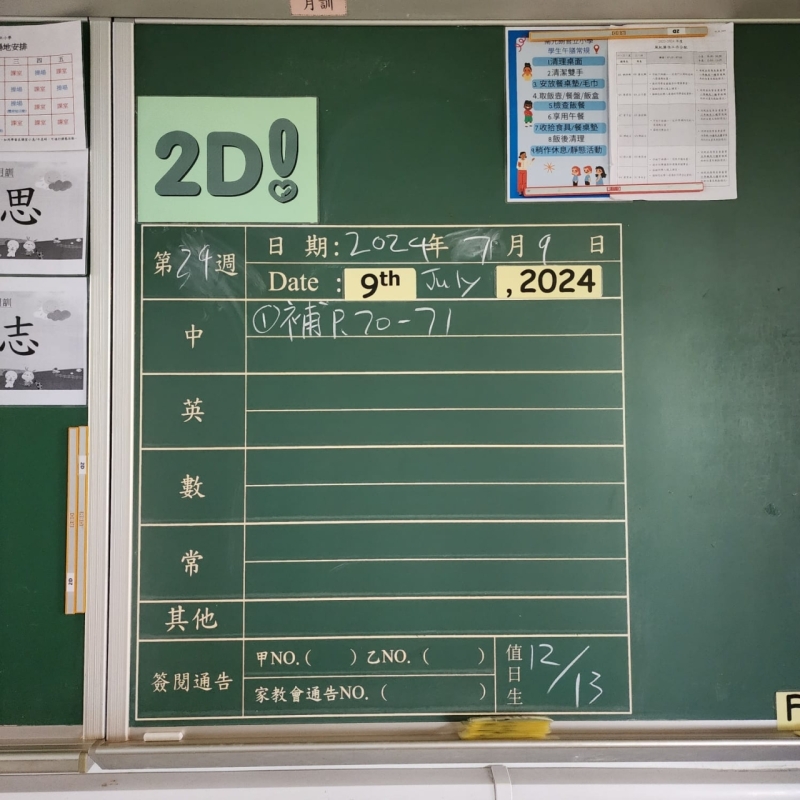 月訓
場地安排
三 四 五
思
志
2D!
學生午膳常規
1清理桌面
2清潔雙手
3.安放餐桌墊/毛巾
4.取飯壺/餐盤/飯盒
5檢查飯餐
6享用午餐
7收拾食具/餐桌墊
8飯後清理
9.稍作休息/靜態活動
第34週
日 期:2024年 7月9 日
Date : 9th July , 2024
中
①補P.70-71
英
數
常
其他
簽閱通告
甲NO.( ) 乙NO. ( )
家教會通告NO. ( )
值日生
12/13